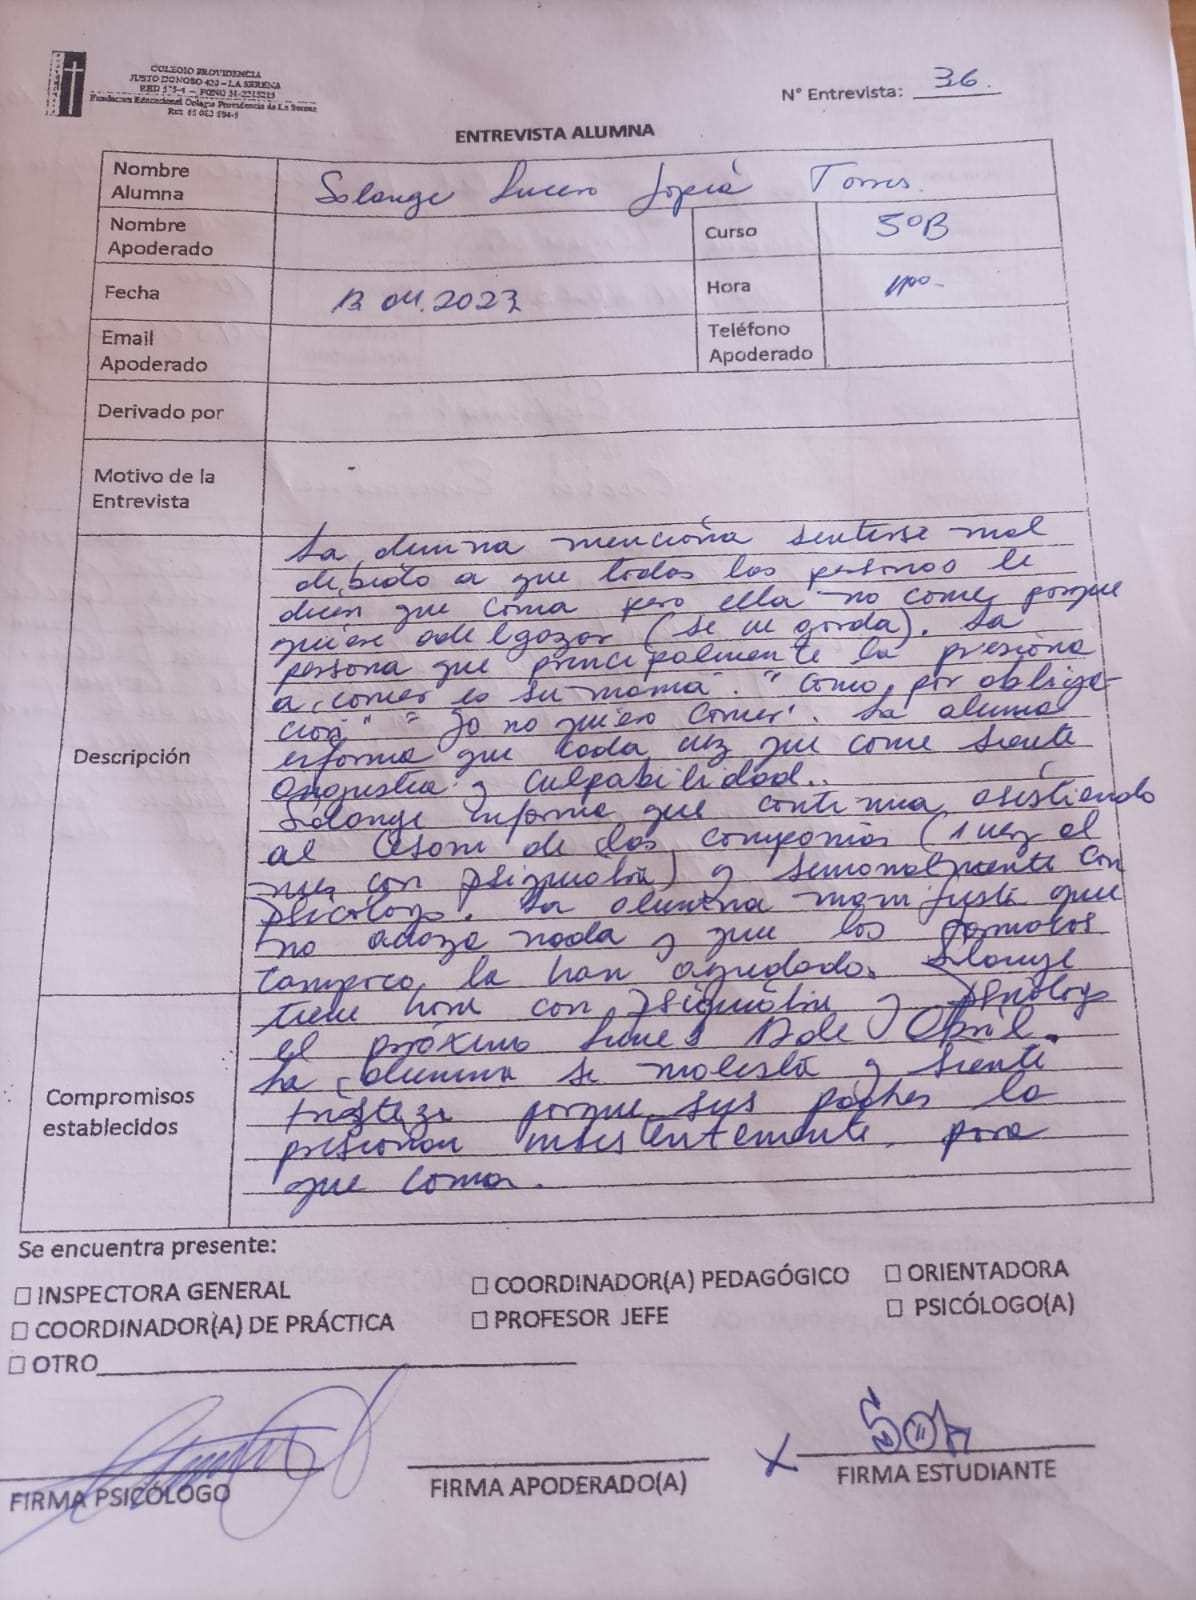 COLEGIO PROVIDENCIA
JUSTO DONOSO 420 - LA SERENA
RBD 575-4 - FONO 51-2215215
Fundacion Educacional Colegio Providencia de La Serena
Rut: 65 082 594-5
N° Entrevista: 36.
ENTREVISTA ALUMNA
Nombre Alumna Solange Lucero Jopiá Torres.
Nombre Apoderado
Curso 5ºB
Fecha 13 04.2023
Hora
Email Apoderado
Teléfono Apoderado
Derivado por
Motivo de la Entrevista
Descripción
La alumna menciona sentirse mal
debido a que todas las personas le
dicen que coma pero ella no come, porque
quiere adelgazar (se ve gorda). La
persona que principalmente la presiona
a comer es su mamá. "Como por obliga-
ción" "Yo no quiero comer". La alumna
informa que cada vez que come siente
angustia y culpabilidad..
Solange informa que continua asistiendo
al Cesam de las compañias (1 vez al
mes con psiquiatra) y semanalmente con
psicologo. La alumna manifiesta que
no avanza nada y que los farmacos
tampoco la han ayudado. Solange
Compromisos establecidos
tiene hora con psiquiatra y psicólogo
el próximo lunes 17 de Abril.
La alumna se molesta y siente
tristeza porque sus padres la
presionan insistentemente para
que coma.
Se encuentra presente:
☐ INSPECTORA GENERAL ☐ COORDINADOR(A) PEDAGÓGICO ☐ ORIENTADORA
☐ COORDINADOR(A) DE PRÁCTICA ☐ PROFESOR JEFE ☐ PSICÓLOGO(A)
☐ OTRO
X Sol
FIRMA PSICÓLOGO FIRMA APODERADO(A) FIRMA ESTUDIANTE